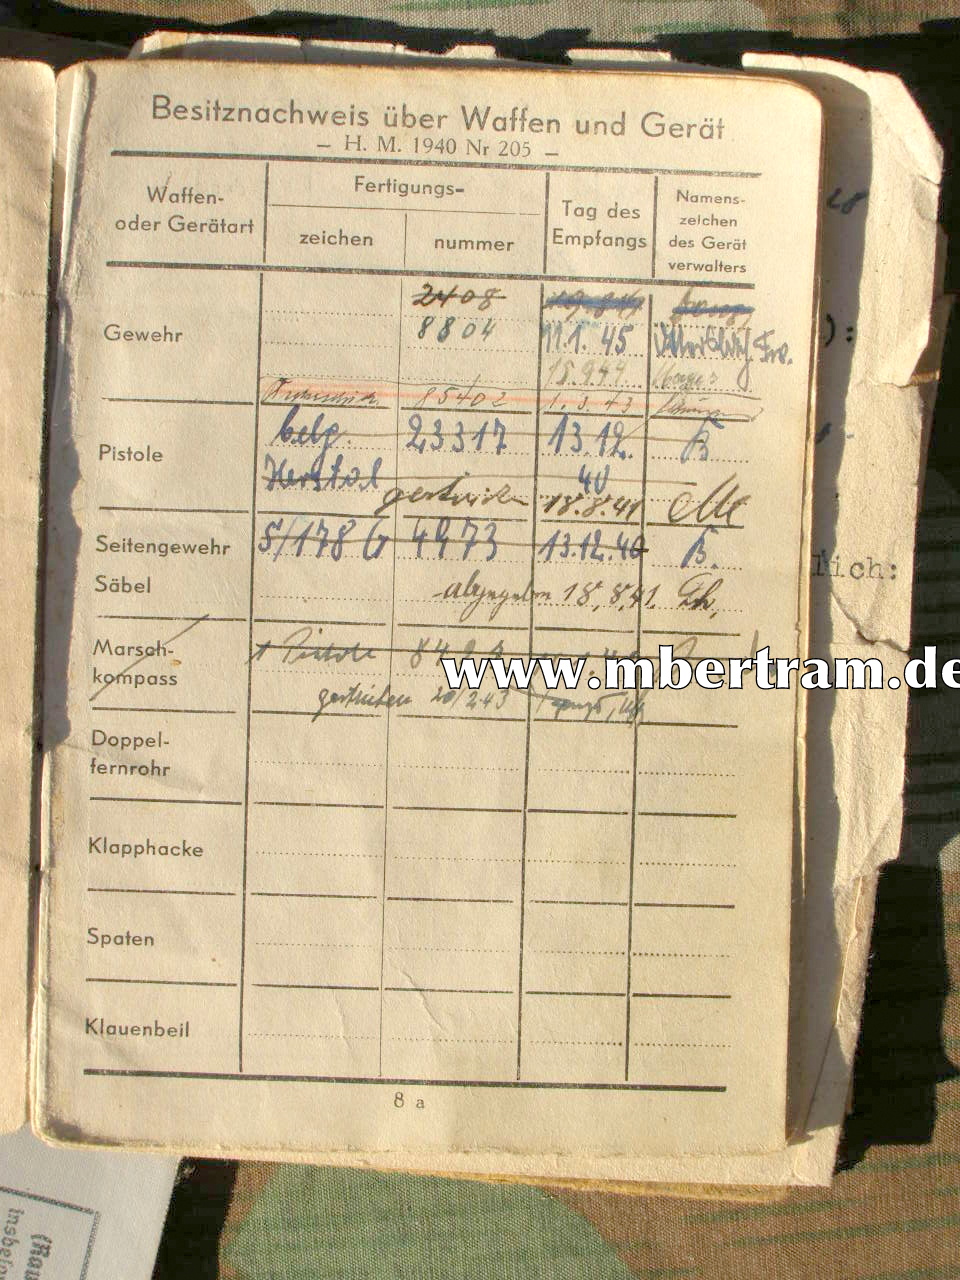 Besitznachweis über Waffen und Gerät
— H. M. 1940 Nr 205 —
Waffen-
oder Gerätart
Fertigungs-
zeichen
nummer
Tag des
Empfangs
Namens-
zeichen
des Gerät
verwalters
Gewehr
2408
8804 11.1.45
15.9.44
85402 1.3.43
Pistole
belg. 23317 13.12. B
Herstal 40
gestrichen 18.8.41
Seitengewehr
S/178 G 4973 13.12.40 B.
Säbel
abgegeben 18.8.41.
Marsch-
kompass
1 Pistole
gestrichen 20/2.43
Doppel-
fernrohr
Klapphacke
Spaten
Klauenbeil
8 a
lich:
www.mbertram.de